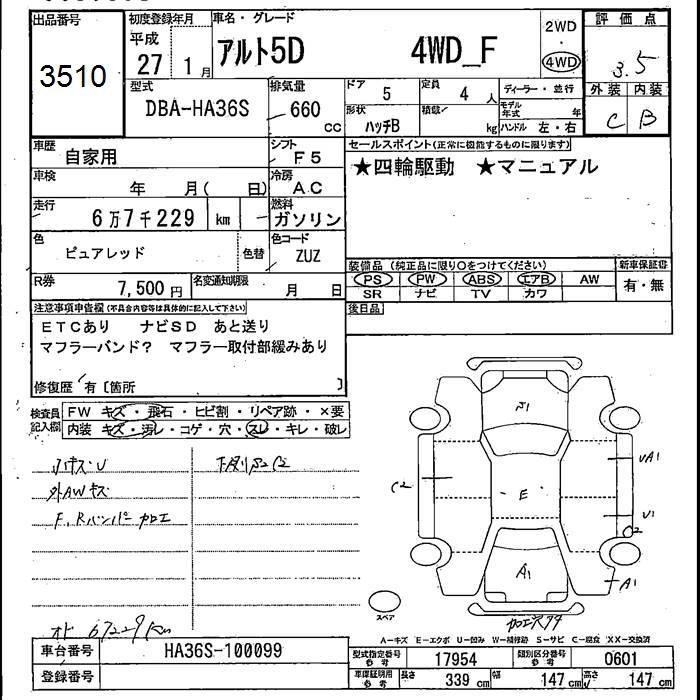 出品番号
3510
初度登録年月
平成
27 1月
車名・グレード
アルト5D 4WD_F
2WD
・
4WD
評価点
3.5
外装 内装
C B
型式
DBA-HA36S
排気量
660
CC
ドア 5
定員 4 人
ディーラー・並行
形状
ハッチB
積載 kg
モデル年式 年
ハンドル 左・右
車歴 自家用
シフト F5
セールスポイント(正常に機能するものに限ります)
★四輪駆動 ★マニュアル
車検 年 月( 日)
冷房 AC
走行
6万7千229 km
燃料
ガソリン
色
ピュアレッド
色替
色コード
ZUZ
装備品(純正品に限り○をつけてください)
新車保証書
PS PW ABS エアB AW
有・無
SR ナビ TV カワ
R券
7,500円
名変通知期限 月 日
後日品
注意事項申告欄(不具合内容等は具体的に記入して下さい)
ETCあり ナビSD あと送り
マフラーバンド? マフラー取付部緩みあり
修復歴 有〔箇所 〕
検査員記入欄
FW キズ・飛石・ヒビ割・リペア跡・×要
内装 キズ・汚レ・コゲ・穴・スレ・キレ・破レ
小キズU
外AWキズ
F、Rバンパー加工
下廻りS2C2
オド 67229km
A1
C2
E
UA1
U1
C2
A1
A1
加工穴アリ
スペア
A-キズ E-エクボ U-凹み W-補修跡 S-サビ C-腐食 XX-交換済
車台番号 HA36S-100099
登録番号
型式指定番号
参考
17954
類別区分番号
参考
0601
車庫証明用
参考
長さ 339cm 幅 147cm 高さ 147cm